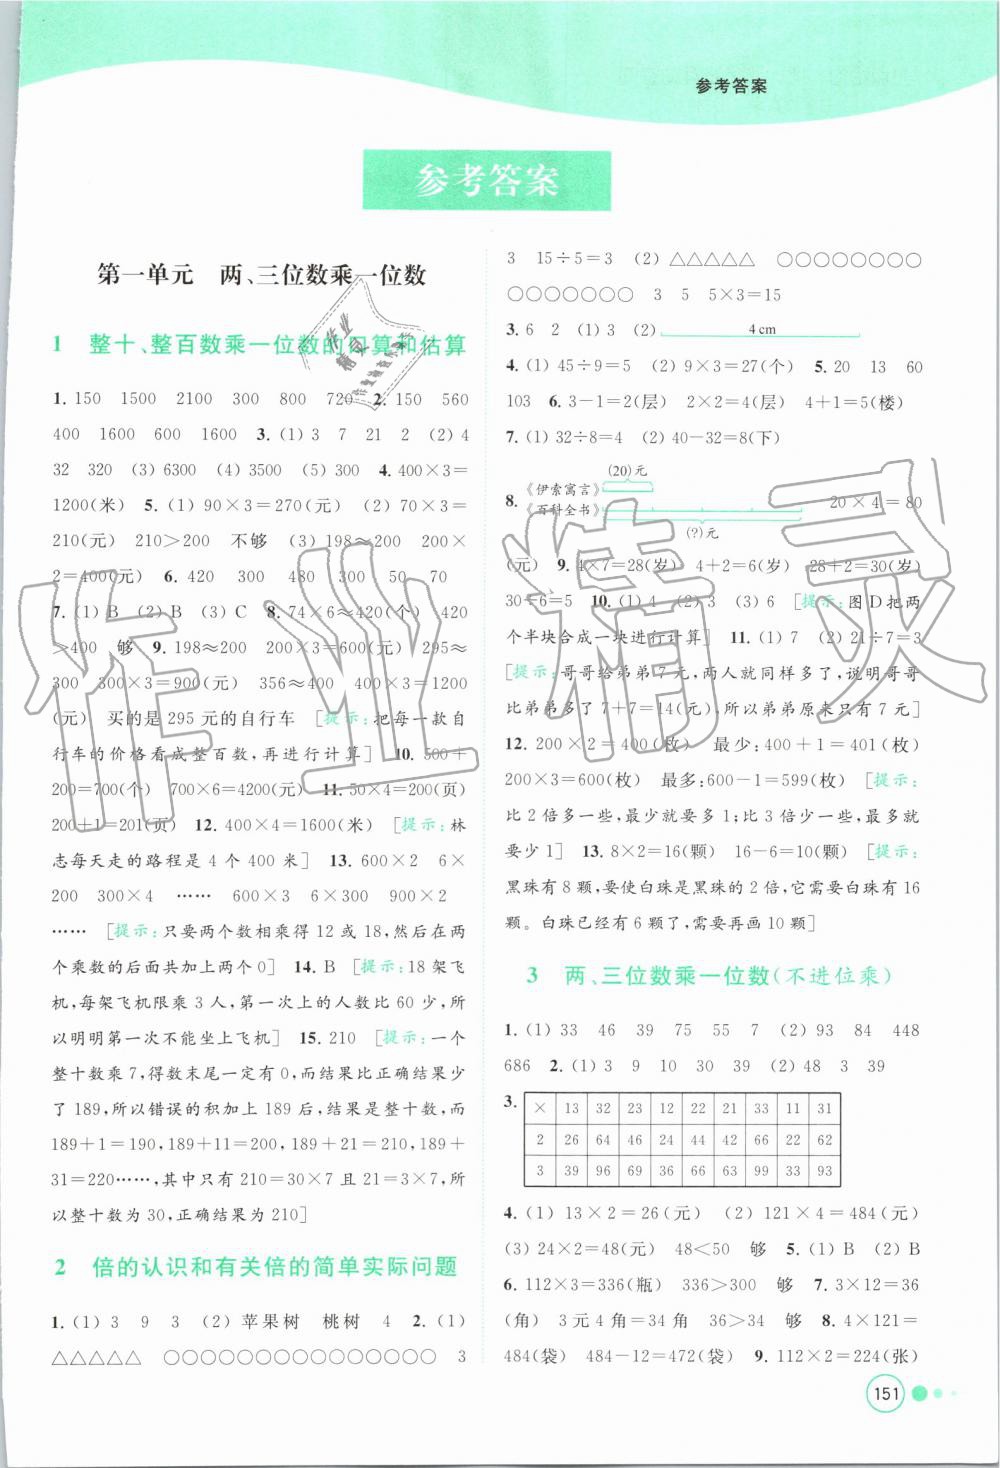 参考答案
参考答案
第一单元　两、三位数乘一位数
1　整十、整百数乘一位数的口算和估算
1. 150　1500　2100　300　800　720　2. 150　560
400　1600　600　1600　3. (1) 3　7　21　2　(2) 4
32　320　(3) 6300　(4) 3500　(5) 300　4. 400×3=
1200(米)　5. (1) 90×3=270(元)　(2) 70×3=
210(元)　210>200　不够　(3) 198≈200　200×
2=400(元)　6. 420　300　480　180　50　70
7. (1) B　(2) B　(3) C　8. 74×6≈420(个)　420
>400　够　9. 198≈200　200×3=600(元)　295≈
300　300×3=900(元)　356≈400　400×3=1200
(元)　买的是 295 元的自行车　[提示:把每一款自
行车的价格看成整百数,再进行计算]　10. 500+
200=700(个)　700×6=4200(元)　11. 50×4=200(页)
200+1=201(页)　12. 400×4=1600(米)　[提示:林
志每天走的路程是 4 个 400 米]　13. 600×2　6×
200　300×4　……　600×3　6×300　900×2
……　[提示:只要两个数相乘得 12 或 18,然后在两
个乘数的后面共加上两个 0]　14. B　[提示:18 架飞
机,每架飞机限乘 3 人,第一次上的人数比 60 少,所
以明明第一次不能坐上飞机]　15. 210　[提示:一个
整十数乘 7,得数末尾一定有 0,而结果比正确结果少
了 189,所以错误的积加上 189 后,结果是整十数,而
189+1=190,189+11=200,189+21=210,189+
31=220……,其中只有 210=30×7 且 21=3×7,所
以整十数为 30,正确结果为 210]
2　倍的认识和有关倍的简单实际问题
1. (1) 3　9　3　(2) 苹果树　桃树　4　2. (1)
△△△△△　○○○○○○○○○○○○○○○　3
3　15÷5=3　(2) △△△△△　○○○○○○○○
○○○○○○○　3　5　5×3=15
3. 6　2　(1) 3　(2) 4 cm
4. (1) 45÷9=5　(2) 9×3=27(个)　5. 20　13　60
103　6. 3-1=2(层)　2×2=4(层)　4+1=5(楼)
7. (1) 32÷8=4　(2) 40-32=8(下)
(20)元
8. 《伊索寓言》
《百科全书》　20×4=80
(?)元
(元)　9. 4×7=28(岁)　4+2=6(岁)　28+2=30(岁)
30÷6=5　10. (1) 4　(2) 3　(3) 6　[提示:图 D 把两
个半块合成一块进行计算]　11. (1) 7　(2) 21÷7=3
[提示:哥哥给弟弟 7 元,两人就同样多了,说明哥哥
比弟弟多了 7+7=14(元),所以弟弟原来只有 7 元]
12. 200×2=400(枚)　最少:400+1=401(枚)
200×3=600(枚)　最多:600-1=599(枚)　[提示:
比 2 倍多一些,最少就要多 1;比 3 倍少一些,最多就
要少 1]　13. 8×2=16(颗)　16-6=10(颗)　[提示:
黑珠有 8 颗,要使白珠是黑珠的 2 倍,它需要白珠有 16
颗。白珠已经有 6 颗了,需要再画 10 颗]
3　两、三位数乘一位数(不进位乘)
1. (1) 33　46　39　75　55　7　(2) 93　84　448
686　2. (1) 3　9　10　30　39　(2) 48　3　39
3. ×　13　32　23　12　22　21　33　11　31
2　26　64　46　24　44　42　66　22　62
3　39　96　69　36　66　63　99　33　93
4. (1) 13×2=26(元)　(2) 121×4=484(元)
(3) 24×2=48(元)　48<50　够　5. (1) B　(2) B
6. 112×3=336(瓶)　336>300　够　7. 12×3=36
(角)　3 元 4 角=34 角　36>34　够　8. 4×121=
484(袋)　484-12=472(袋)　9. 112×2=224(张)
151
作业精灵